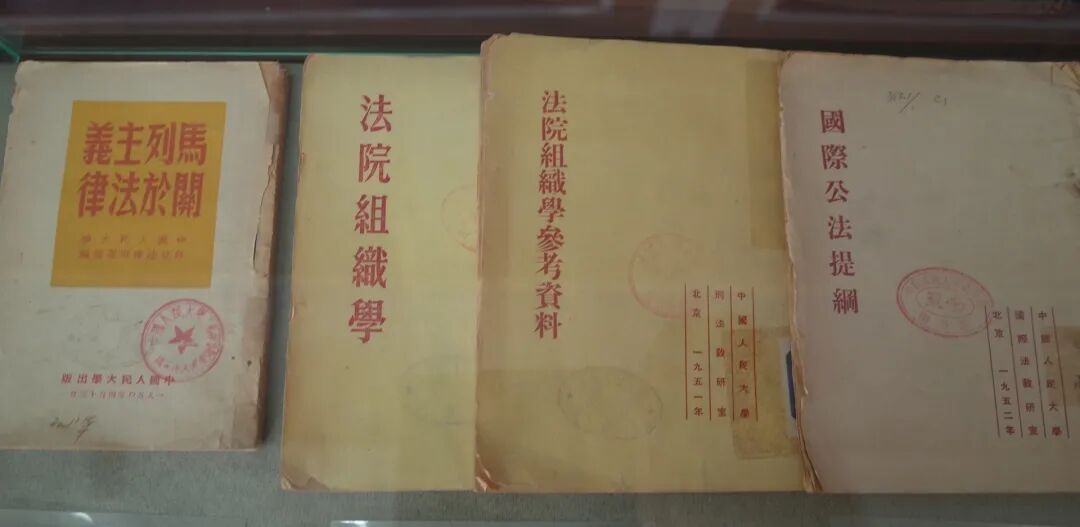 馬列主義
關於法律
中國人民大學
中國人民大學出版
法院組織學
法院組織學參考資料
中國人民大學
刑法教研室
北京 一九五一年
國際公法提綱
中國人民大學
國際法教研室
北京 一九五二年